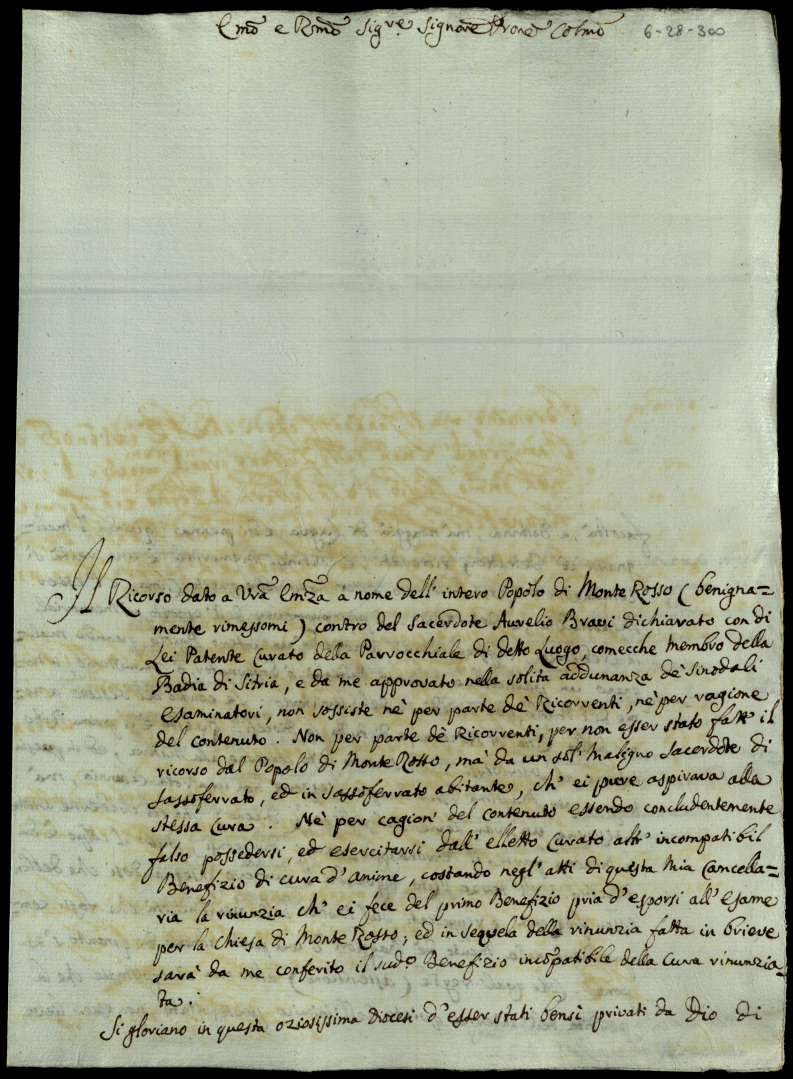 Emõ e Rmõ Sig.re Signore Prone Colmõ 6-28-300
Il Ricorso dato a Vrã Emzã à nome dell' intero Popolo di Monte Rosso (benigna=
mente rimessomi) contro del Sacerdote Aurelio Bravi dichiarato con di
Lei Patente Curato della Parrocchiale di detto Luogo, comecche membro della
Badia di Sitria, e da me approvato nella solita addunanza de' Sinodali
Esaminatori, non sossiste nè per parte dè Ricorrenti, nè per ragione
del contenuto. Non per parte dè Ricorrenti, per non esser stato fatt' il
ricorso dal Popolo di Monte Rosso, mà da un sol' maligno Sacerdote di
Sassoferrato, ed in Sassoferrato abitante, ch' ei pure aspirava alla
stessa Cura. Nè per cagion' del contenuto essendo concludentemente
falso possedersi, ed esercitarsi dall' elletto Curato altr' incompatibil
Benefizio di cura d'anime, costando negl' atti di questa mia Cancella=
ria la rinunzia ch' ei fece del primo Benefizio pria d'esporsi all' esame
per la Chiesa di Monte Rosso, ed in sequela della rinunzia fatta in brieve
sarà da me conferito il sud.o Benefizio incõpatibile della Cura rinunzia=
ta.
Si gloriano in questa oziosissima Diocesi d'esser stati bensì privati da Dio di